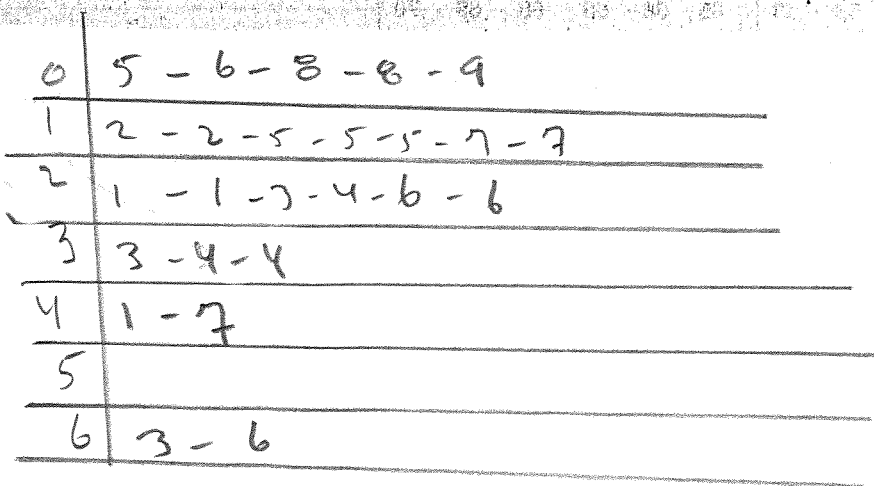 0 5 - 6 - 8 - 8 - 9
1 2 - 2 - 5 - 5 - 5 - 7 - 7
2 1 - 1 - 3 - 4 - 6 - 6
3 3 - 4 - 4
4 1 - 7
5
6 3 - 6